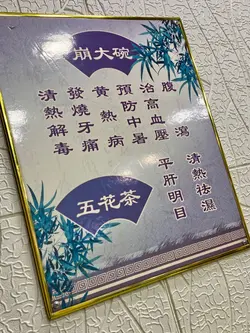 崩大碗
腹瀉
治高血壓
預防中暑
黄熱病
發燒牙痛
清熱解毒
五花茶
清熱祛濕
平肝明目